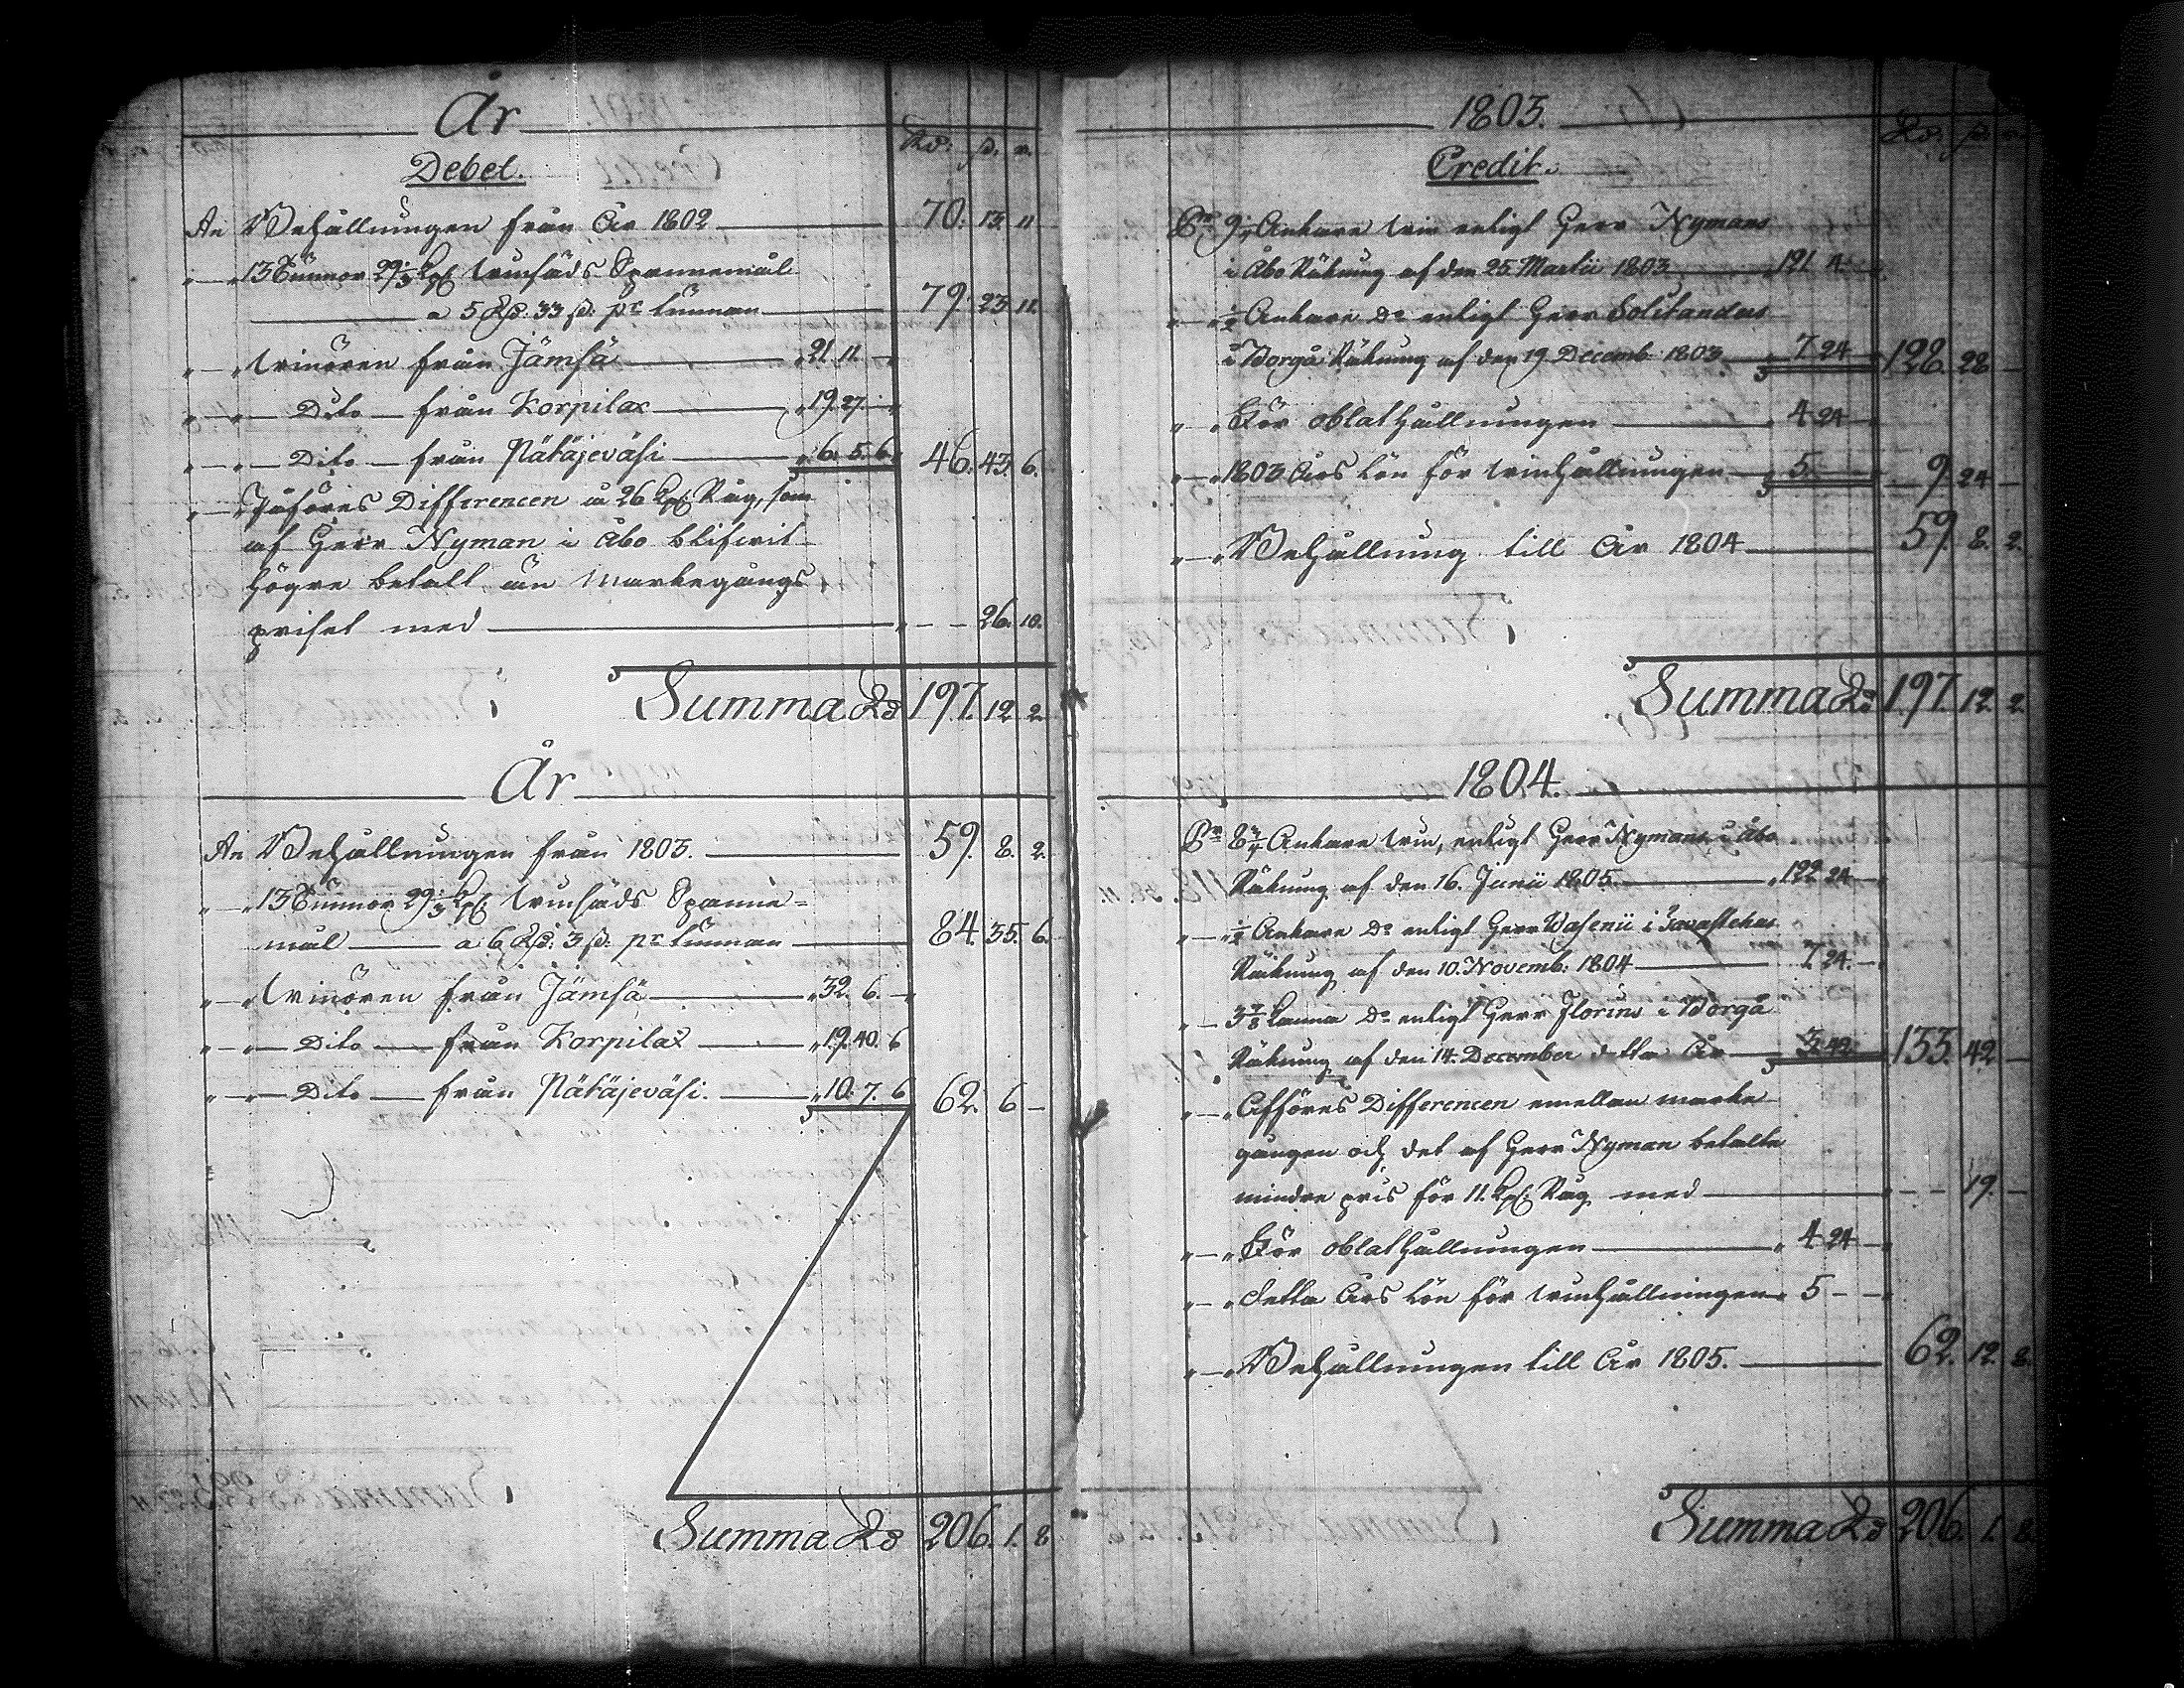 År
Debet.
Rd: ß. r.
An Behållningen från År 1802 70. 13. 11
" " 13 Tunnor 29 1/3 Kpr Winsäds Spannemål
a 5 Rd: 33 ß. pr tunnan 79. 23. 11.
" " Winören från Jämsä 21. 11. —
" " Dito från Korpilax 19. 27. —
" " Dito från Pätäjeväsi 6. 5. 6. 46. 43. 6.
" " Påföres Differencen å 26 Kpr Råg, som
af Herr Nyman i Åbo blifvit
högre betalt än Markegångs
priset med — — 26. 10.
Summa Rd 197. 12. 2.
År
An Behållningen från 1803. 59. 8. 2.
" " 13 Tunnor 29 1/3 Kpr Winsäds Spanne=
mål a 6 Rd: 3 ß. pr tunnan 84. 35. 6.
" " Winören från Jämsä 32. 6. —
" " Dito från Korpilax 19. 40. 6
" " Dito från Pätäjeväsi. 10. 7. 6 62. 6 —
Summa Rd 206. 1. 8
1803.
Credit.
Rd. ß r.
Pr Ankare Win enligt Herr Nymans
i Åbo Räkning af den 25 Martii 1803 121. 4. —
" " 1/2 Ankare Do enligt Herr Solitandus
i Borgå Räkning af den 19 Decemb 1803 7 24 128. 28 —
" " För oblathållningen 4 24 —
" " 1803 Års Lön för Winhållningen 5. — 9. 24 —
" " Behållning till År 1804 59. 8. 2.
Summa Rd 197. 12. 2.
1804.
Pr Ankare Win, enligt Herr Nymans i Åbo
Räkning af den 16. Junii 1805. 122 24 —
" " 1/2 Ankare Do enligt Herr Wasenii i Tavastehus
Räkning af den 10. Novemb: 1804 7. 24. —
" " 3 7/8 Kanna Do enligt Herr Florins i Borgå
Räkning af den 14. December detta År 3. 42. 133. 42. —
" " Afföres Differencen emellan Marke
gången och det af Herr Nyman betalte
mindre pris för 11. Kpr Råg med — — 19. —
" " För oblathållningen 4 24 —
" " detta Års Lön för Winhållningen 5 — —
" " Behållningen till År 1805. 62. 12. 8.
Summa Rd 206. 1. 8.